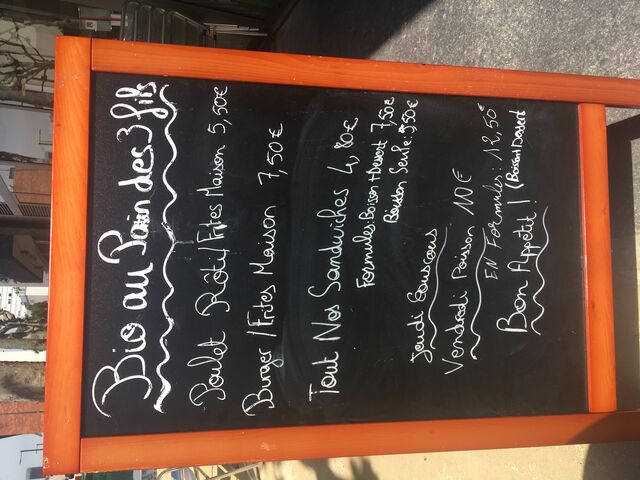 Bio au Pain des 3 fils
Poulet Rôti/Frites Maison 5,50€
Burger/Frites Maison 7,50€
Tout Nos Sandwiches 4,80€
Formules: Boisson + Dessert 7,50€
Boisson Seule: 5,50€
Jeudi Couscous
Vendredi Poisson 10€
EN Formules: 12,50€
(Boisson/Dessert)
Bon Appétit!